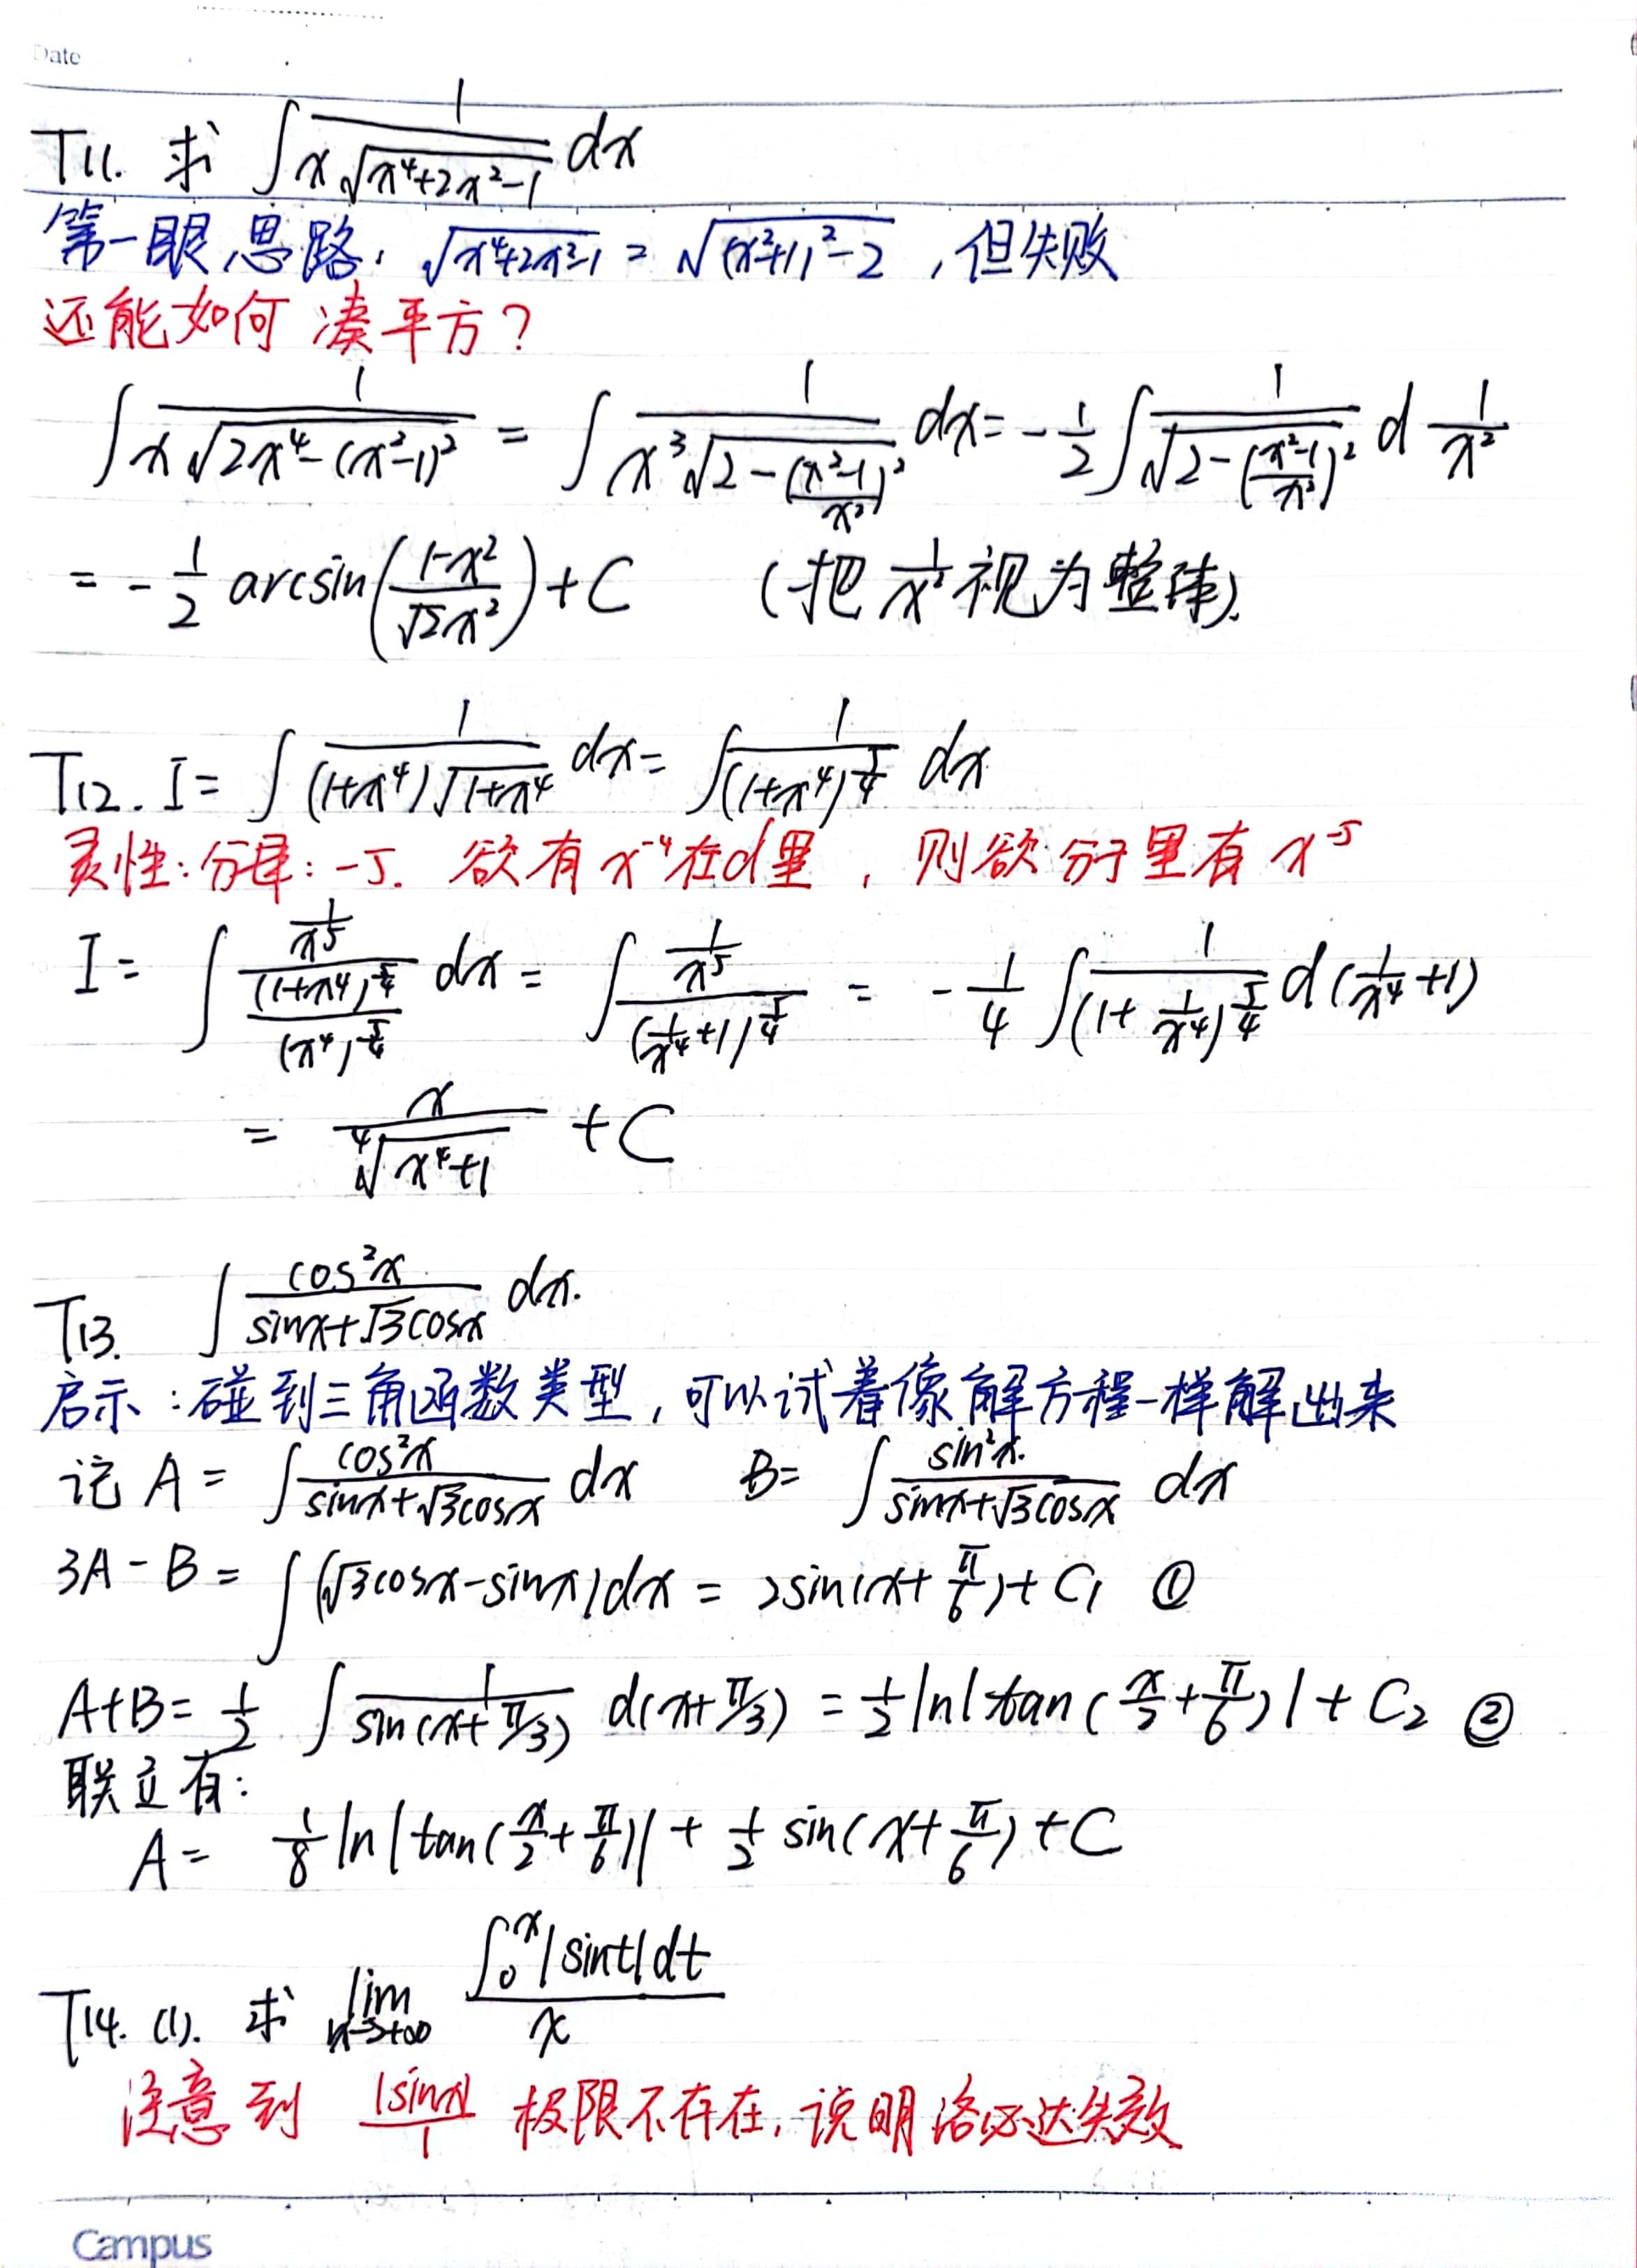 Date
T11. 求 ∫ 1/(x√(x⁴+2x²-1)) dx
第一眼思路: √(x⁴+2x²-1) = √((x²+1)²-2) ,但失败
还能如何凑平方?
∫ 1/(x√(2x⁴-(x²-1)²)) = ∫ 1/(x³√(2-((x²-1)/x²)²)) dx = -1/2 ∫ 1/√(2-((x²-1)/x²)²) d 1/x²
= -1/2 arcsin((1-x²)/(√2x²)) + C (把 1/x² 视为整体).
T12. I = ∫ 1/((1+x⁴)∜(1+x⁴)) dx = ∫ 1/(1+x⁴)^(5/4) dx
灵性:分母:-5. 欲有 x⁻⁴在d里 , 则欲分子里有 x⁻⁵
I = ∫ (1/x⁵)/((1+x⁴)^(5/4)/(x⁴)^(5/4)) dx = ∫ (1/x⁵)/(1/x⁴+1)^(5/4) = -1/4 ∫ 1/(1+1/x⁴)^(5/4) d(1/x⁴+1)
= x/∜(x⁴+1) + C
T13. ∫ cos²x/(sinx+√3cosx) dx.
启示:碰到三角函数类型,可以试着像解方程一样解出来
记 A = ∫ cos²x/(sinx+√3cosx) dx B = ∫ sin²x/(sinx+√3cosx) dx
3A-B = ∫ (√3cosx-sinx)dx = 2sin(x+π/6)+C₁ ①
A+B = 1/2 ∫ 1/sin(x+π/3) d(x+π/3) = 1/2 ln|tan(x/2+π/6)|+C₂ ②
联立有:
A = 1/8 ln|tan(x/2+π/6)| + 1/2 sin(x+π/6)+C
T14. (1). 求 lim x→+∞ ∫₀ˣ|sint|dt / x
注意到 |sinx|/1 极限不存在,说明洛必达失效
Campus